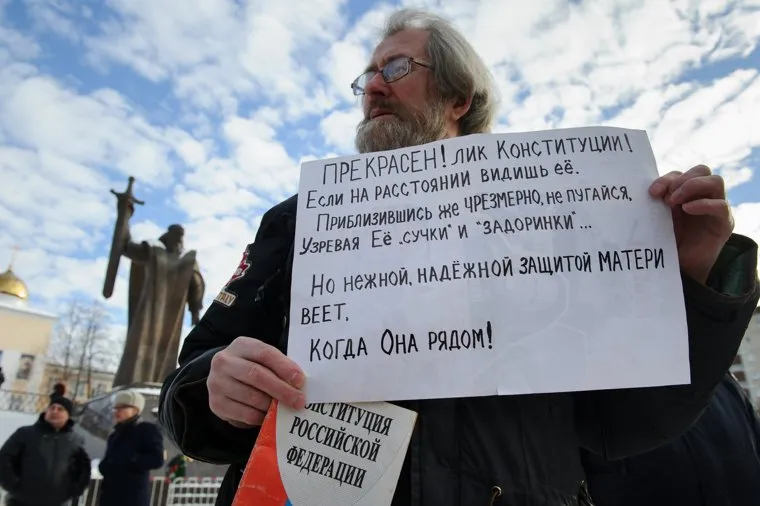 ПРЕКРАСЕН! ЛИК КОНСТИТУЦИИ!
ЕСЛИ НА РАССТОЯНИИ ВИДИШЬ ЕЁ.
ПРИБЛИЗИВШИСЬ ЖЕ ЧРЕЗМЕРНО, НЕ ПУГАЙСЯ,
УЗРЕВАЯ ЕЁ „СУЧКИ" И "ЗАДОРИНКИ"...
НО НЕЖНОЙ, НАДЁЖНОЙ ЗАЩИТОЙ МАТЕРИ
ВЕЕТ,
КОГДА ОНА РЯДОМ!
КОНСТИТУЦИЯ
РОССИЙСКОЙ
ФЕДЕРАЦИИ